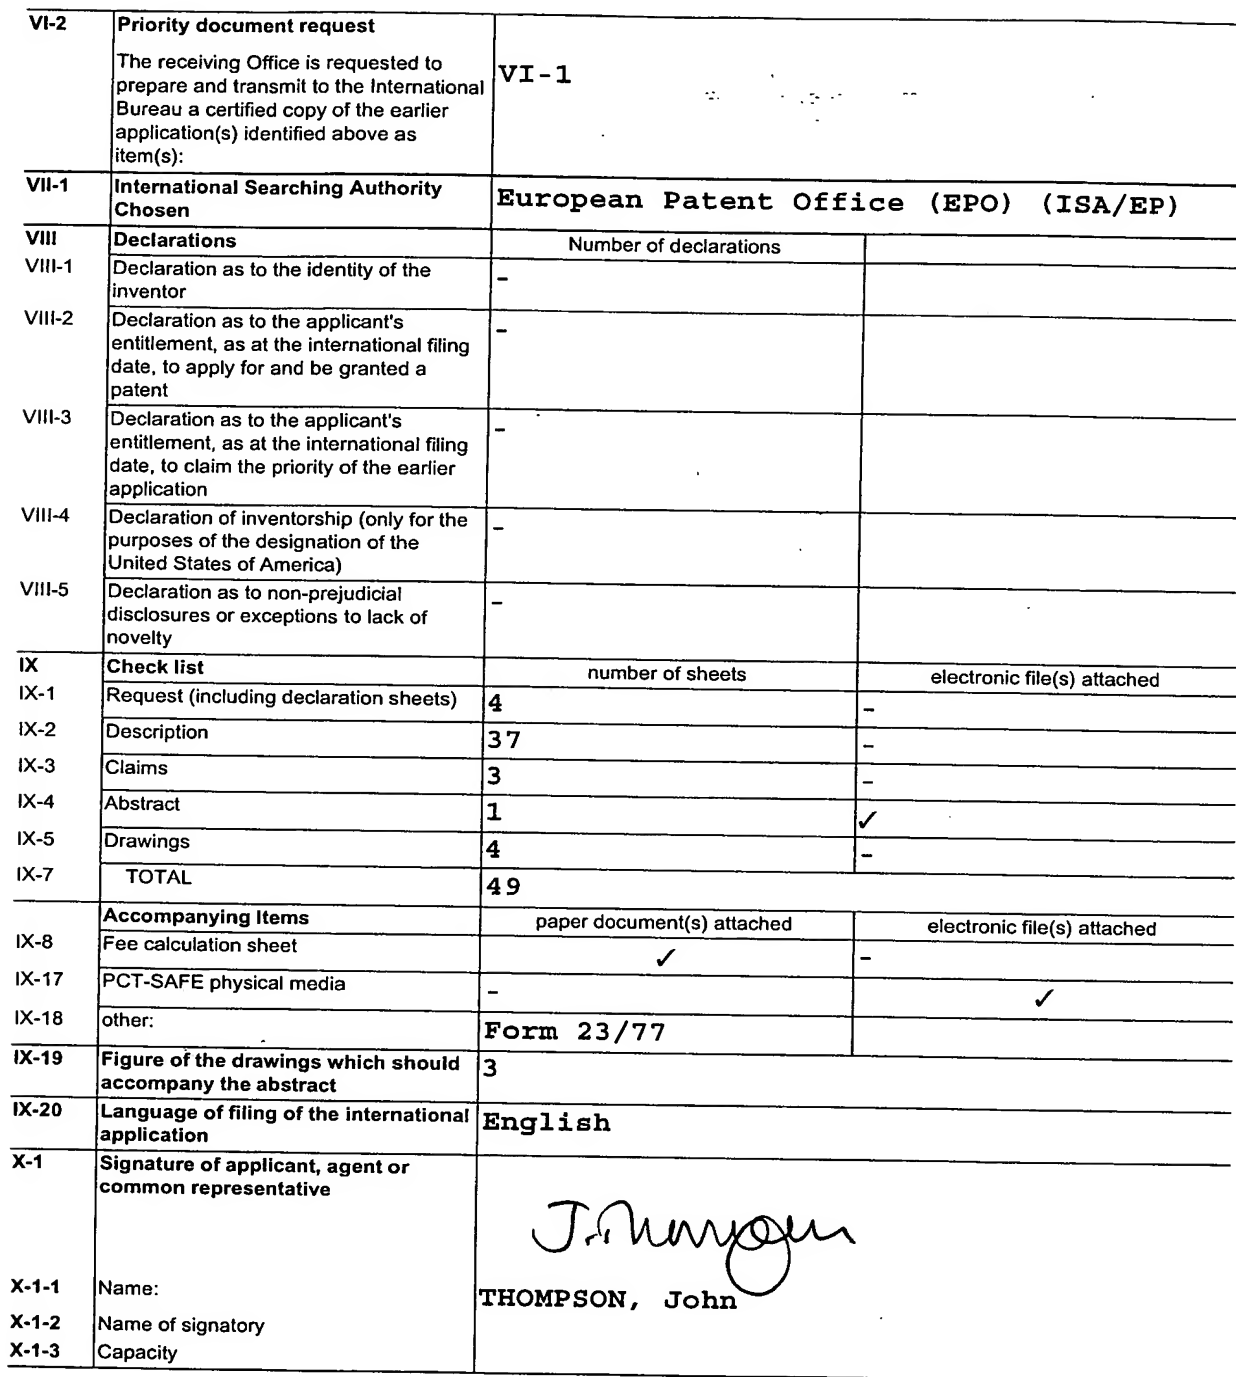 VI-2 Priority document request
The receiving Office is requested to
prepare and transmit to the International
Bureau a certified copy of the earlier
application(s) identified above as
item(s):
VI-1
VII-1 International Searching Authority
Chosen
European Patent Office (EPO) (ISA/EP)
VIII Declarations Number of declarations
VIII-1 Declaration as to the identity of the
inventor
-
VIII-2 Declaration as to the applicant's
entitlement, as at the international filing
date, to apply for and be granted a
patent
-
VIII-3 Declaration as to the applicant's
entitlement, as at the international filing
date, to claim the priority of the earlier
application
-
VIII-4 Declaration of inventorship (only for the
purposes of the designation of the
United States of America)
-
VIII-5 Declaration as to non-prejudicial
disclosures or exceptions to lack of
novelty
-
IX Check list number of sheets electronic file(s) attached
IX-1 Request (including declaration sheets) 4 -
IX-2 Description 37 -
IX-3 Claims 3 -
IX-4 Abstract 1 ✓
IX-5 Drawings 4 -
IX-7 TOTAL 49
Accompanying Items paper document(s) attached electronic file(s) attached
IX-8 Fee calculation sheet ✓ -
IX-17 PCT-SAFE physical media - ✓
IX-18 other: Form 23/77
IX-19 Figure of the drawings which should
accompany the abstract
3
IX-20 Language of filing of the international
application
English
X-1 Signature of applicant, agent or
common representative
J. Thompson
X-1-1 Name: THOMPSON, John
X-1-2 Name of signatory
X-1-3 Capacity